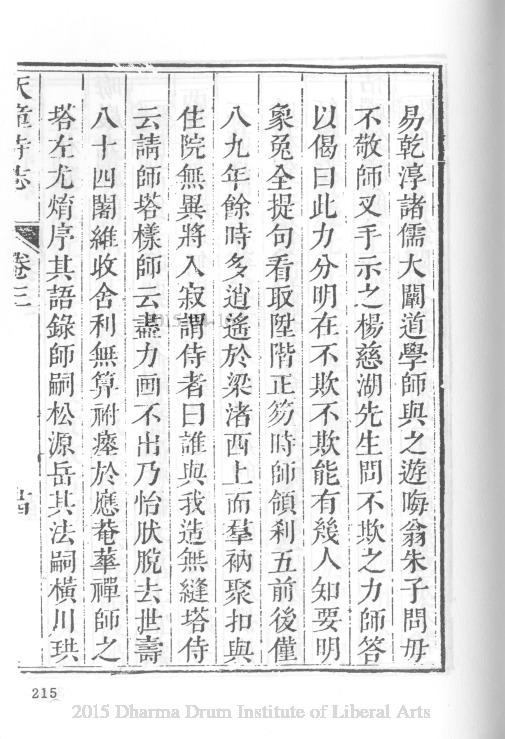 易乾淳諸儒大闡道學師與之遊晦翁朱子問毋
不敬師叉手示之楊慈湖先生問不欺之力師答
以偈曰此力分明在不欺不欺能有幾人知要明
象兔全提句看取陞階正笏時師領刹五前後僅
八九年餘時多逍遙於梁渚西上而羣衲聚扣與
住院無異將入寂謂侍者曰誰與我造無縫塔侍
云請師塔樣師云盡力画不出乃怡狀脫去世壽
八十四闍維收舍利無算祔瘞於應菴華禪師之
塔左尤焴序其語錄師嗣松源岳其法嗣橫川珙
天童寺志
卷三
215
2015 Dharma Drum Institute of Liberal Arts